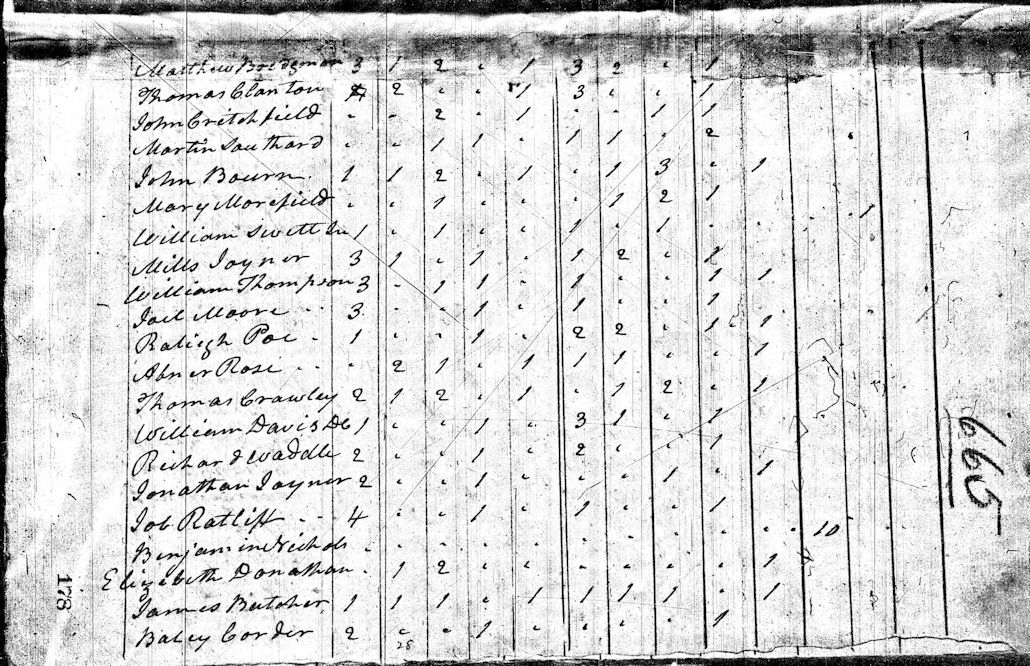 Matthew Bozeman 3 1 2 . 1 3 2 . 1
Thomas Clanton 2 . . 1 3 . . 1
John Critchfield . . 2 . 1 . . 1 1
Martin Southard . . 1 1 . 1 1 . 2
John Bourn 1 1 2 . 1 . 1 3 . 1
Mary Morefield . . 1 . . . 1 2 1 1
William Swett 1 . 1 . . 1 . 1 . .
Mills Joyner 3 1 . 1 . 1 2 . 1
William Thompson 3 . 1 1 . 1 . . 1 1
Joel Moore 3 . . 1 . 1 . . 1
Raligh Poe 1 . . 1 . 2 2 . 1 1
Abner Rose . 2 1 . 1 1 1 . . 1
Thomas Crawley 2 1 2 . 1 . 1 2 . 1
William Davis 1 . . 1 . 3 1 . 1
Richard Waddle 2 . . 1 . 2 . . 1
Jonathan Joyner 2 . . 1 . . . 1 . 1
Job Ratliff 4 . . 1 . 1 . . 1
Benjamin Nichols . . . . . . . . . . . 10
Elizabeth Donathan . 1 2 . . . . . . 1
James Butcher 1 1 1 . 1 1 1 1 . 1
Baley Corder 2 . . 1 . . . . 1
28
178
665